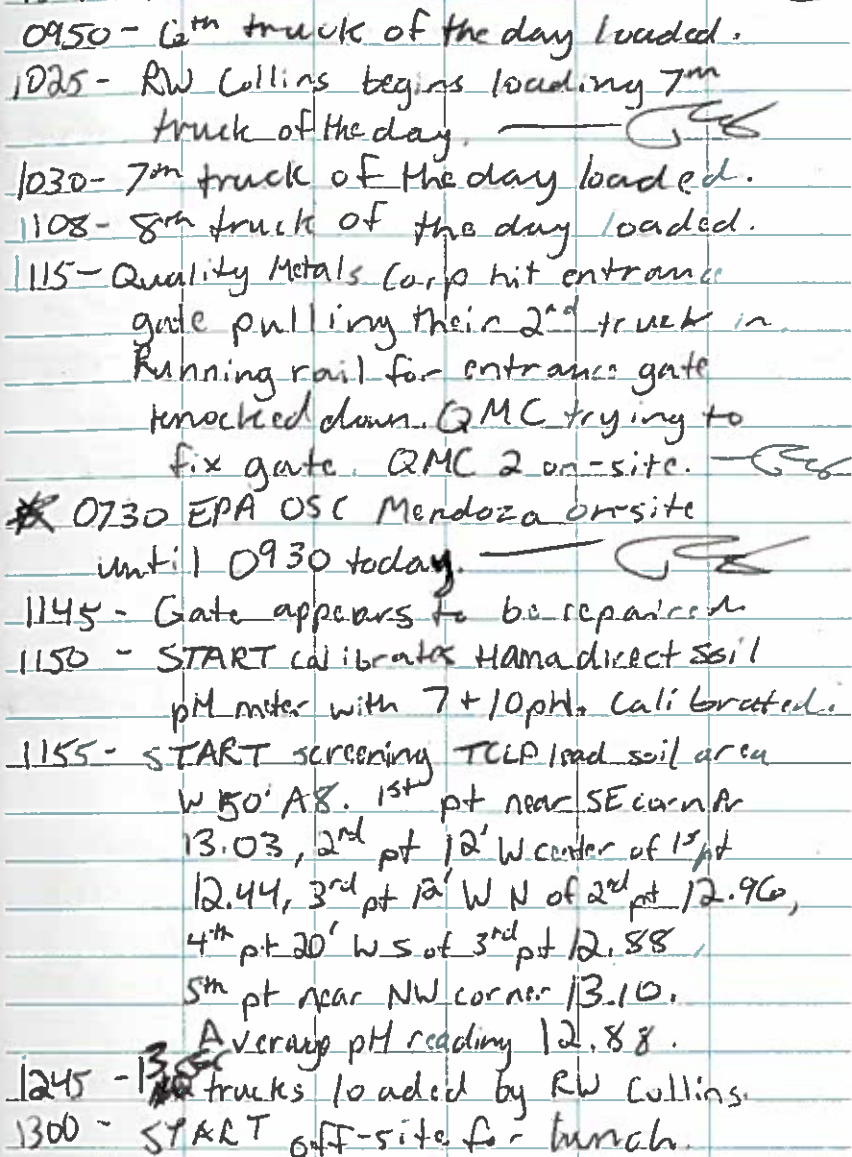 0950 - 6th truck of the day loaded.
1025 - RW Collins begins loading 7th
truck of the day.
1030 - 7th truck of the day loaded.
1108 - 8th truck of the day loaded.
1115 - Quality Metals Corp hit entrance
gate pulling their 2nd truck in.
Running rail for entrance gate
knocked down. QMC trying to
fix gate. QMC 2 on-site.
* 0730 EPA OSC Mendoza on-site
until 0930 today.
1145 - Gate appears to be repaired
1150 - START calibrates Hanna direct soil
pH meter with 7 + 10 pH. Calibrated.
1155 - START screening TCLP lead soil area
W 50' A8. 1st pt near SE corner
13.03, 2nd pt 12' W center of 1st pt
12.44, 3rd pt 12' W N of 2nd pt 12.96,
4th pt 20' W S of 3rd pt 12.88,
5th pt near NW corner 13.10.
Average pH reading 12.88.
1245 - 13 trucks loaded by RW Collins.
1300 - START off-site for lunch.